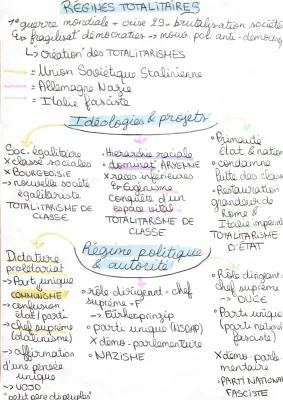 RÉGIMES TOTALITAIRES
1e guerre mondiale + crise 29 = brutalisation société
↳ fragilisat° démocraties → mouv. pol. anti-démocrat
↳ Création des TOTALITARISMES
= Union Soviétique Stalinienne
= Allemagne Nazie
= Italie fasciste
Idéologies & projets
Soc. égalitaire
x classe sociales
x BOURGEOISIE
→ nouvelle société
égalitariste
TOTALITARISME DE
CLASSE
Hiérarchie raciale
• dominat° ARYENNE
x races inférieures
↳ Eugénisme
conquête d'un
espace vital
TOTALITARISME DE
CLASSE
• Primauté
État & nation
• condamne
lutte des classes
• Restauration
grandeur de
Rome &
Italie impériale
TOTALITARISME
D'ÉTAT
Régime politique
& autorité
Dictature
prolétariat
→ Parti unique
COMMUNISME
= confusion
état/parti
→ chef suprême
(stalinisme)
→ affirmation
d'une pensée
unique
→ VOJD
"petit père des peuples"
• rôle dirigent - chef
suprême
→ Führerprinzip
• parti unique (NSDAP)
x démo-parlementaire
• NAZISME
• Rôle dirigent
chef suprême
→ DUCE
• Parti unique
(parti national
fasciste)
x démo-parle
mentaire
• PARTI NATIONAL
FASCISTE